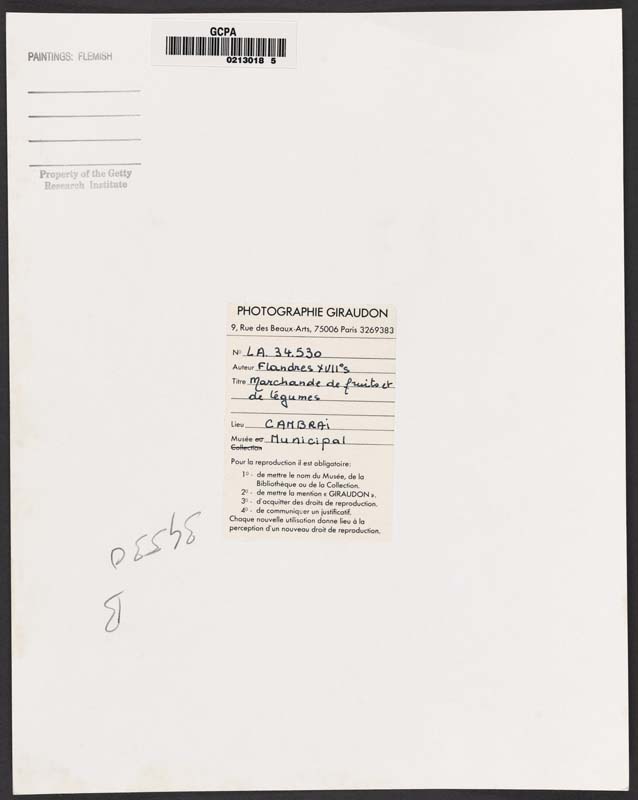 GCPA
0213018 5
PAINTINGS: FLEMISH
Property of the Getty
Research Institute
PHOTOGRAPHIE GIRAUDON
9, Rue des Beaux-Arts, 75006 Paris 3269383
No LA. 34.530
Auteur Flandres XVIIe s
Titre Marchande de fruits et
de légumes
Lieu CAMBRAi
Musée ou Municipal
Collection
Pour la reproduction il est obligatoire:
1o - de mettre le nom du Musée, de la
Bibliothèque ou de la Collection.
2o - de mettre la mention « GIRAUDON ».
3o - d'acquitter des droits de reproduction.
4o - de communiquer un justificatif.
Chaque nouvelle utilisation donne lieu à la
perception d'un nouveau droit de reproduction.
34530
B